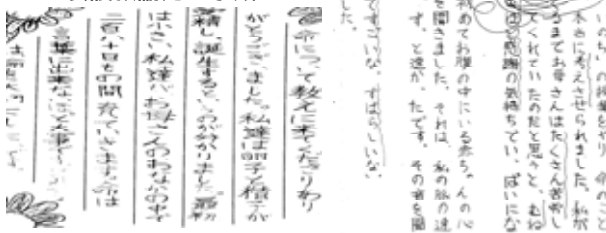 いのち」の授業をやり、命のこと
本当に考えさせられました。私が
るまでお母さんはたくさん苦労し
てくれていたのだと思うと、むね
感謝の気持ちでい、ぱいにな
初めてお腹の中にいる赤ちゃんの心
を聞きました。それは、私の脈の速
す、と速か、たです。その音を聞
てすごいな、すばらしいな。
した。
命について教えに来てくださりあり
がとうございました。私達は卵子と精子が
誕生するというのが分かりました。最初
は小さい私達がお母さんのおなかの中で
二百八十日もの間、育っていきます。命は
言葉に出来ないほど大事